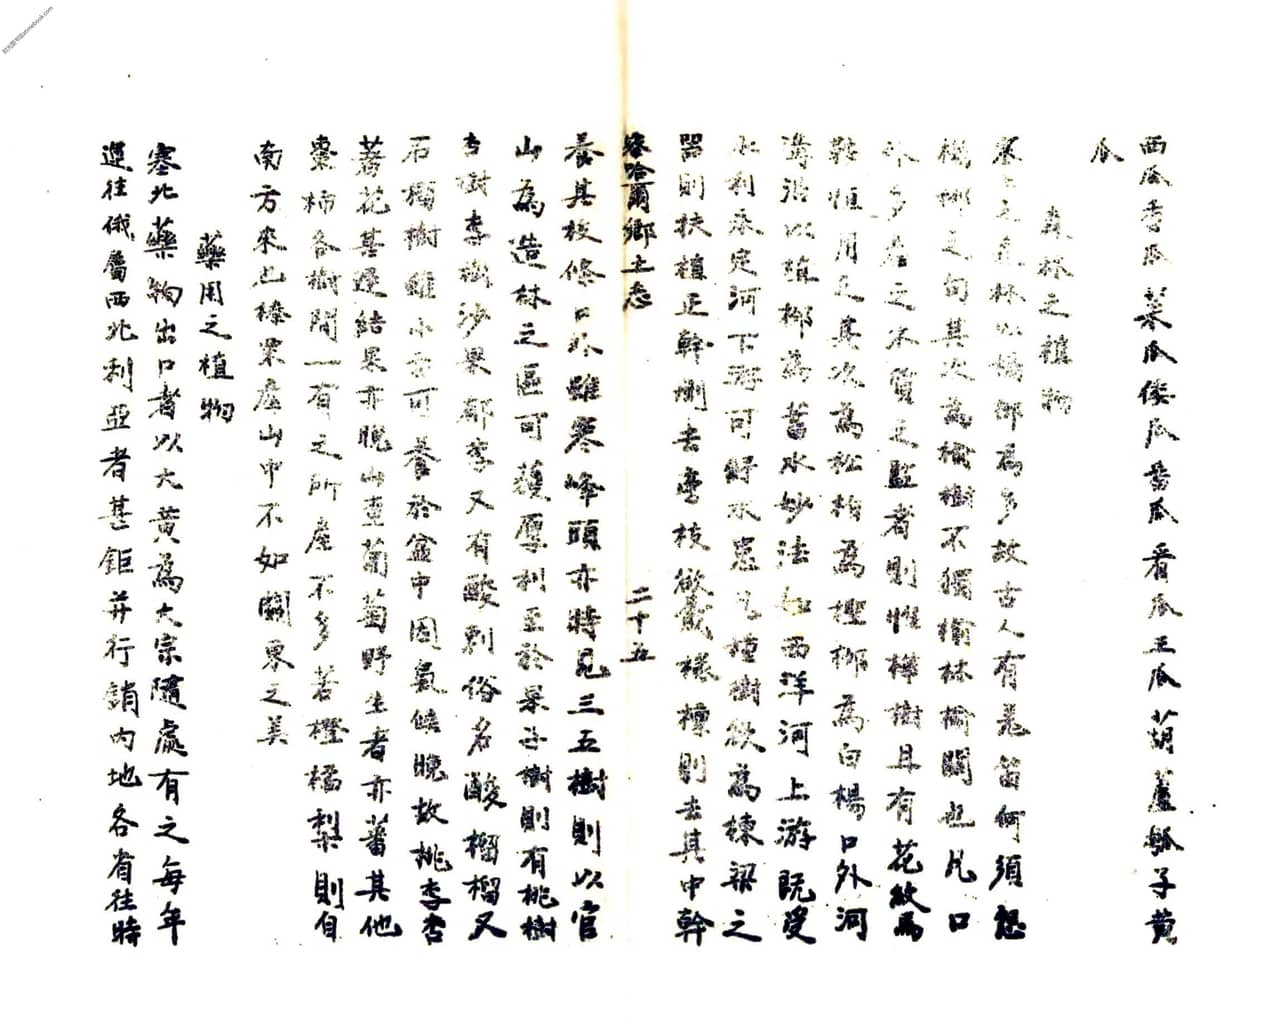 西瓜香瓜菜瓜倭瓜番瓜看瓜王瓜葫蘆瓠子黄
瓜
森林之植物
塞上之森林以楊柳爲多故古人有羌笛何須怨
楊柳之句其次爲榆樹不獨榆林榆關也凡口
外多產之木質之堅者則惟樺樹且有花紋馬
鞍恒用之其次爲松柏爲檉柳爲白楊口外河
溝沿以植柳爲蓄水妙法如西洋河上游既受
水利永定河下游可紓水患凡種樹欲爲棟梁之
器則扶植正幹刪去旁枝欲栽樣棟則去其中幹
察哈爾鄉土志 二十五
養其枝條口外雖寒峰頭亦時見三五樹則以官
山爲造林之區可獲厚利至於果子樹則有桃樹
杏樹李樹沙果郁李又有酸刺俗名酸榴榴又
石榴樹雖小亦可養於盆中因氣候晚故桃李杏
著花甚遲結果亦晚山查葡萄野生者亦蕃其他
棗柿各樹間一有之所產不多若橙橘梨則自
南方來也榛栗產山中不如關界之美
藥用之植物
塞北藥物出口者以大黄爲大宗隨處有之每年
運往俄屬西北利亞者甚鉅并行銷内地各省往時